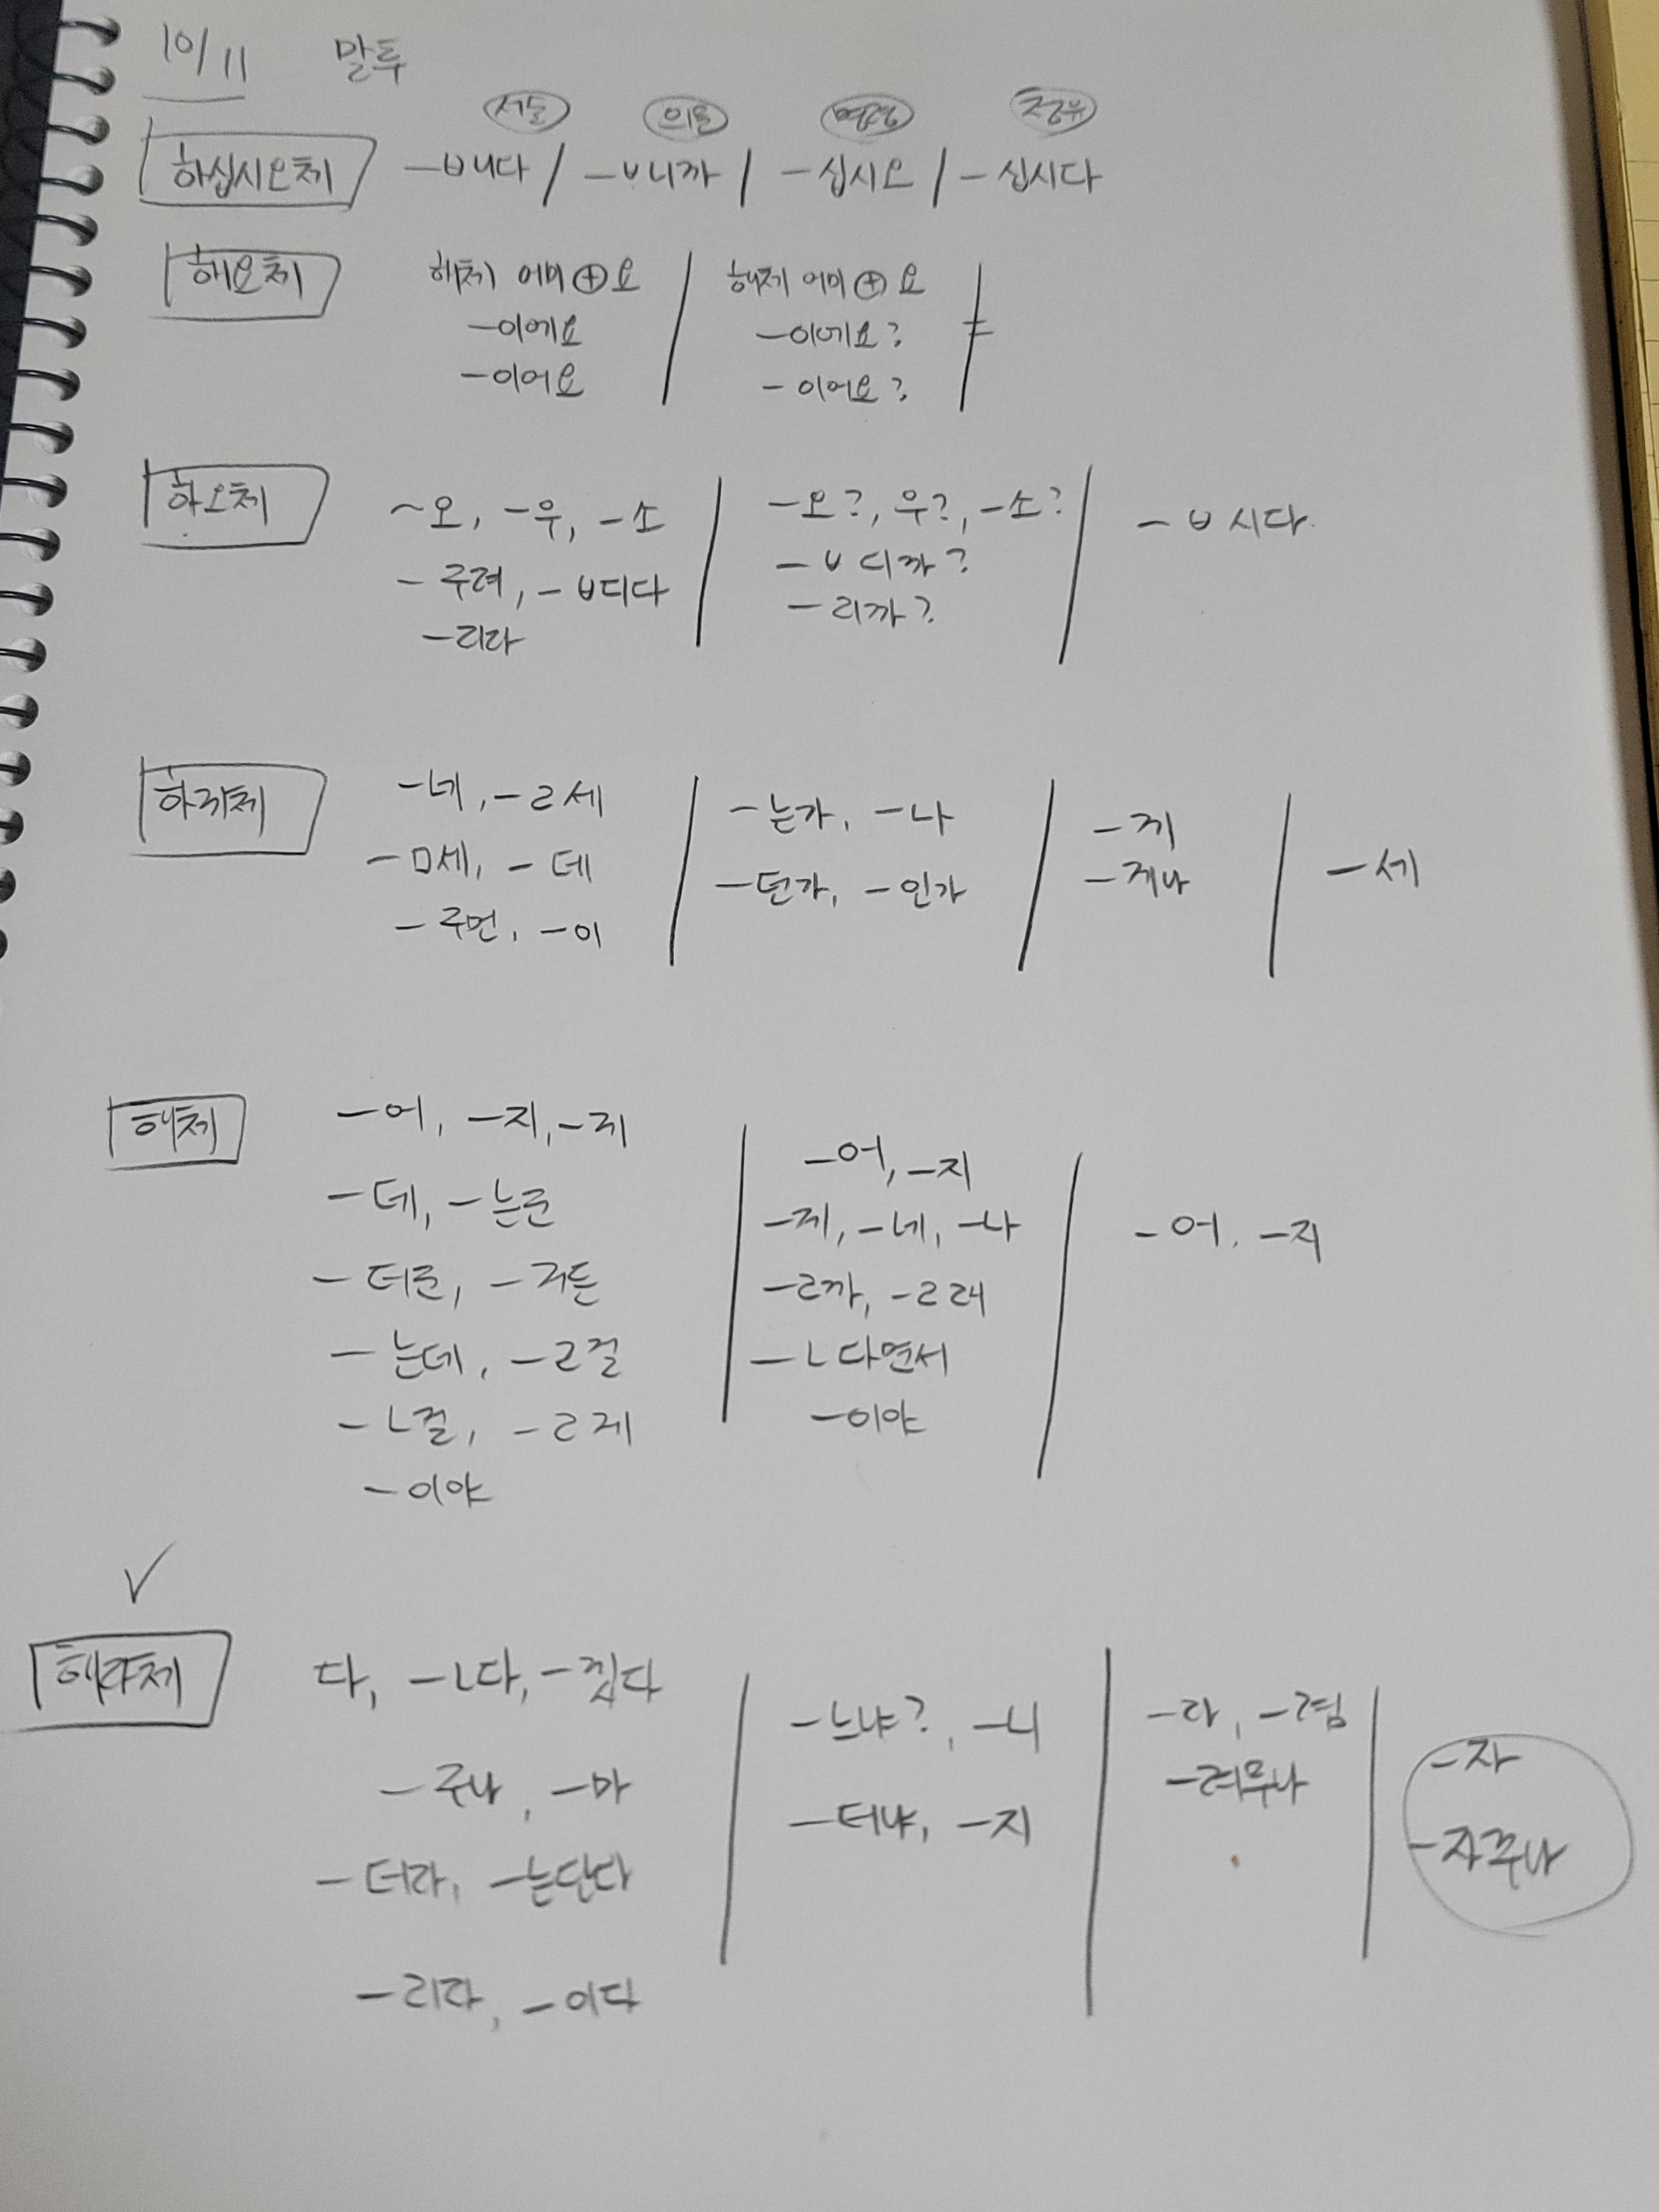 10/11 말투
서술 의문 명령 청유
하십시오체 -ㅂ니다 / -ㅂ니까 / -십시오 / -십시다
해요체 해체 어미 ⊕ 요 해체 어미 ⊕ 요
-이에요 -이에요?
-이어요 -이어요?
하오체 ~오, -우, -소 -오?, 우?, -소? -ㅂ시다.
-구려, -ㅂ디다 -ㅂ디까?
-리다 -리까?
하게체 -네, -ㄹ세 -는가, -나 -게 -세
-ㅁ세, -데 -던가, -인가 -게나
-구먼, -이
해체 -어, -지, -게 -어, -지 -어, -지
-데, -는군 -게, -네, -나
-더군, -거든 -ㄹ까, -ㄹ래
-는데, -ㄹ걸 -ㄴ다면서
-ㄴ걸, -ㄹ게 -이야
-이야
✓
해라체 다, -ㄴ다, -겠다 -느냐?, -니 -라, -렴 -자
-구나, -마 -더냐, -지 -려무나 -자꾸나
-더라, -는단다
-리라, -이다